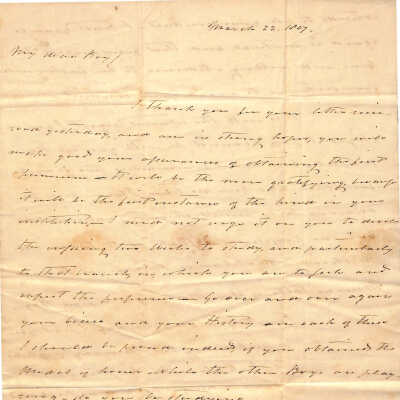 March 22. 1807.
My dear Boy!
I thank you for your letter rece
ived yesterday, and am in strong hopes, you will
make good your assurance of obtaining the first
Premium — It will be the more gratifying, because
it will be the first instance of the kind in your
institution — I need not urge it on you to devote
the ensuing two weeks to study, and particularly
to that branch, in which you are to feel and
expect the — Go over and over again
your and your History are each of these
I should be proud indeed, if you obtained the
Medal of honor while the other Boys are play
you be studying